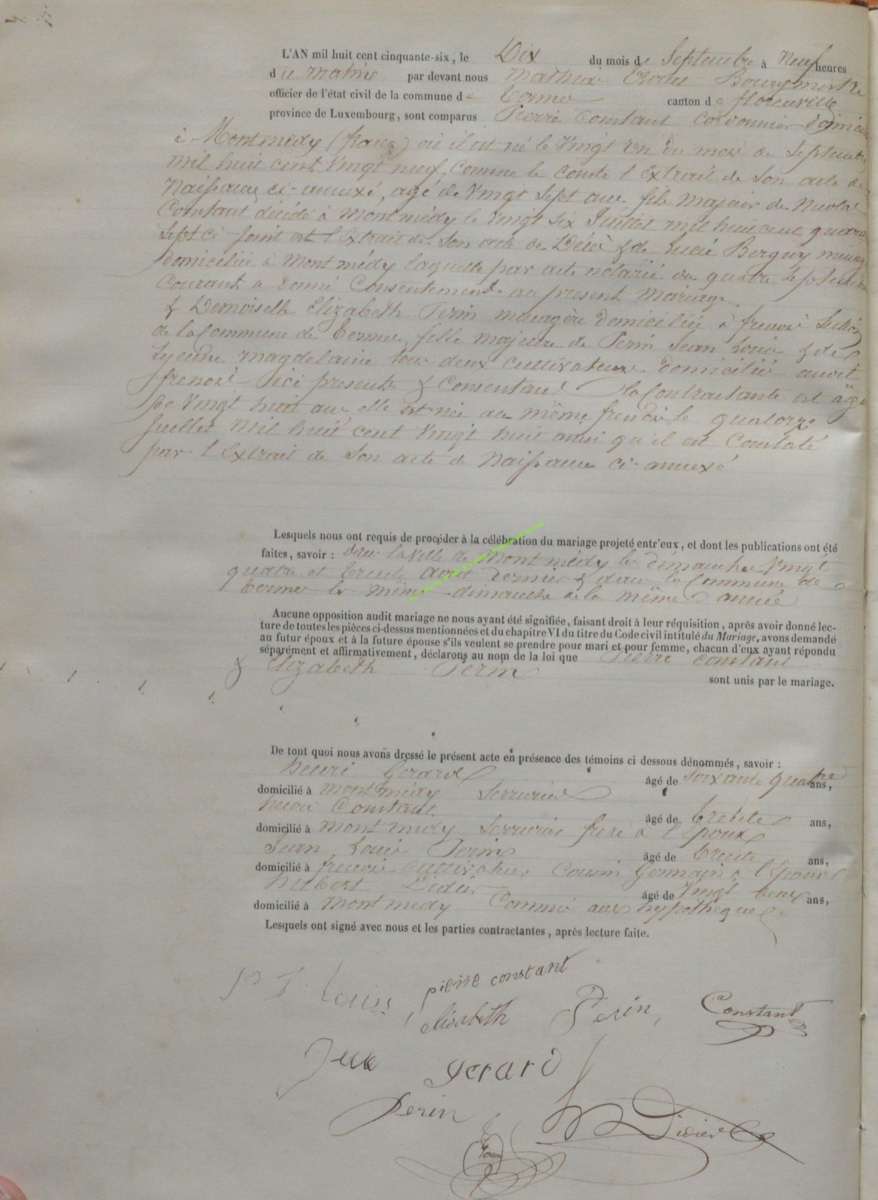 L'AN mil huit cent cinquante-six, le Dix du mois de Septembre à Neuf heures
du matin par devant nous Mathieu Bourgmestre
officier de l'état civil de la commune de Termes canton de florenville
province de Luxembourg, sont comparus Pierre Constant Cordonnier Domicilié
à Montmédy (france) où il est né le Vingt un du mois de Septembre
mil huit cent Vingt neuf, comme le conste l'Extrait de Son acte de
Naissance ci-annexé, agé de Vingt Sept ans fils Majeur de Nicolas
Constant décédé à Montmédy le Vingt six Juillet mil huit cent quarante
Sept ci joint est l'Extrait de Son acte de Décès & de Lucie
domiciliée à Montmédy laquelle par acte notarié du quatre Septembre
Courant a donné Consentement au présent Mariage
& Demoiselle Elizabeth Perin menagère domiciliée à frenois Section
de la Commune de Termes, fille majeure de Perin Jean Louis & de
Magdelaine tous deux Cultivateurs domiciliés audit
frenois ici présents & Consentant la Contractante est agée
de Vingt huit ans elle est née au même frenois le quatorze
Juillet Mil huit cent Vingt huit ainsi qu'il est Constaté
par l'Extrait de Son acte de Naissance ci-annexé
Lesquels nous ont requis de procéder à la célébration du mariage projeté entr'eux, et dont les publications ont été
faites, savoir : dans la Ville de Montmédy les dimanches Vingt
quatre et trente août dernier & dans la Commune de
Termes les mêmes dimanches de la même année
Aucune opposition audit mariage ne nous ayant été signifiée, faisant droit à leur réquisition, après avoir donné lec-
ture de toutes les pièces ci-dessus mentionnées et du chapitre VI du titre du Code civil intitulé du Mariage, avons demandé
au futur époux et à la future épouse s'ils veulent se prendre pour mari et pour femme, chacun d'eux ayant répondu
séparément et affirmativement, déclarons au nom de la loi que Pierre Constant
& Elizabeth Perin sont unis par le mariage.
De tout quoi nous avons dressé le présent acte en présence des témoins ci dessous dénommés, savoir :
henri Gerard âgé de Soixante quatre ans,
domicilié à Montmédy Serrurier
Constant âgé de trente ans,
domicilié à Montmédy Serrurier frère à l'Epoux
Jean Louis Perin âgé de trente ans,
domicilié à frenois Cultivateur Cousin Germain à l'Epouse
hubert Didier âgé de Vingt deux ans,
domicilié à Montmédy Commis aux hypothèques
Lesquels ont signé avec nous et les parties contractantes, après lecture faite.
pierre constant
elisabeth Perin, Constant
gerard
Perin
Didier